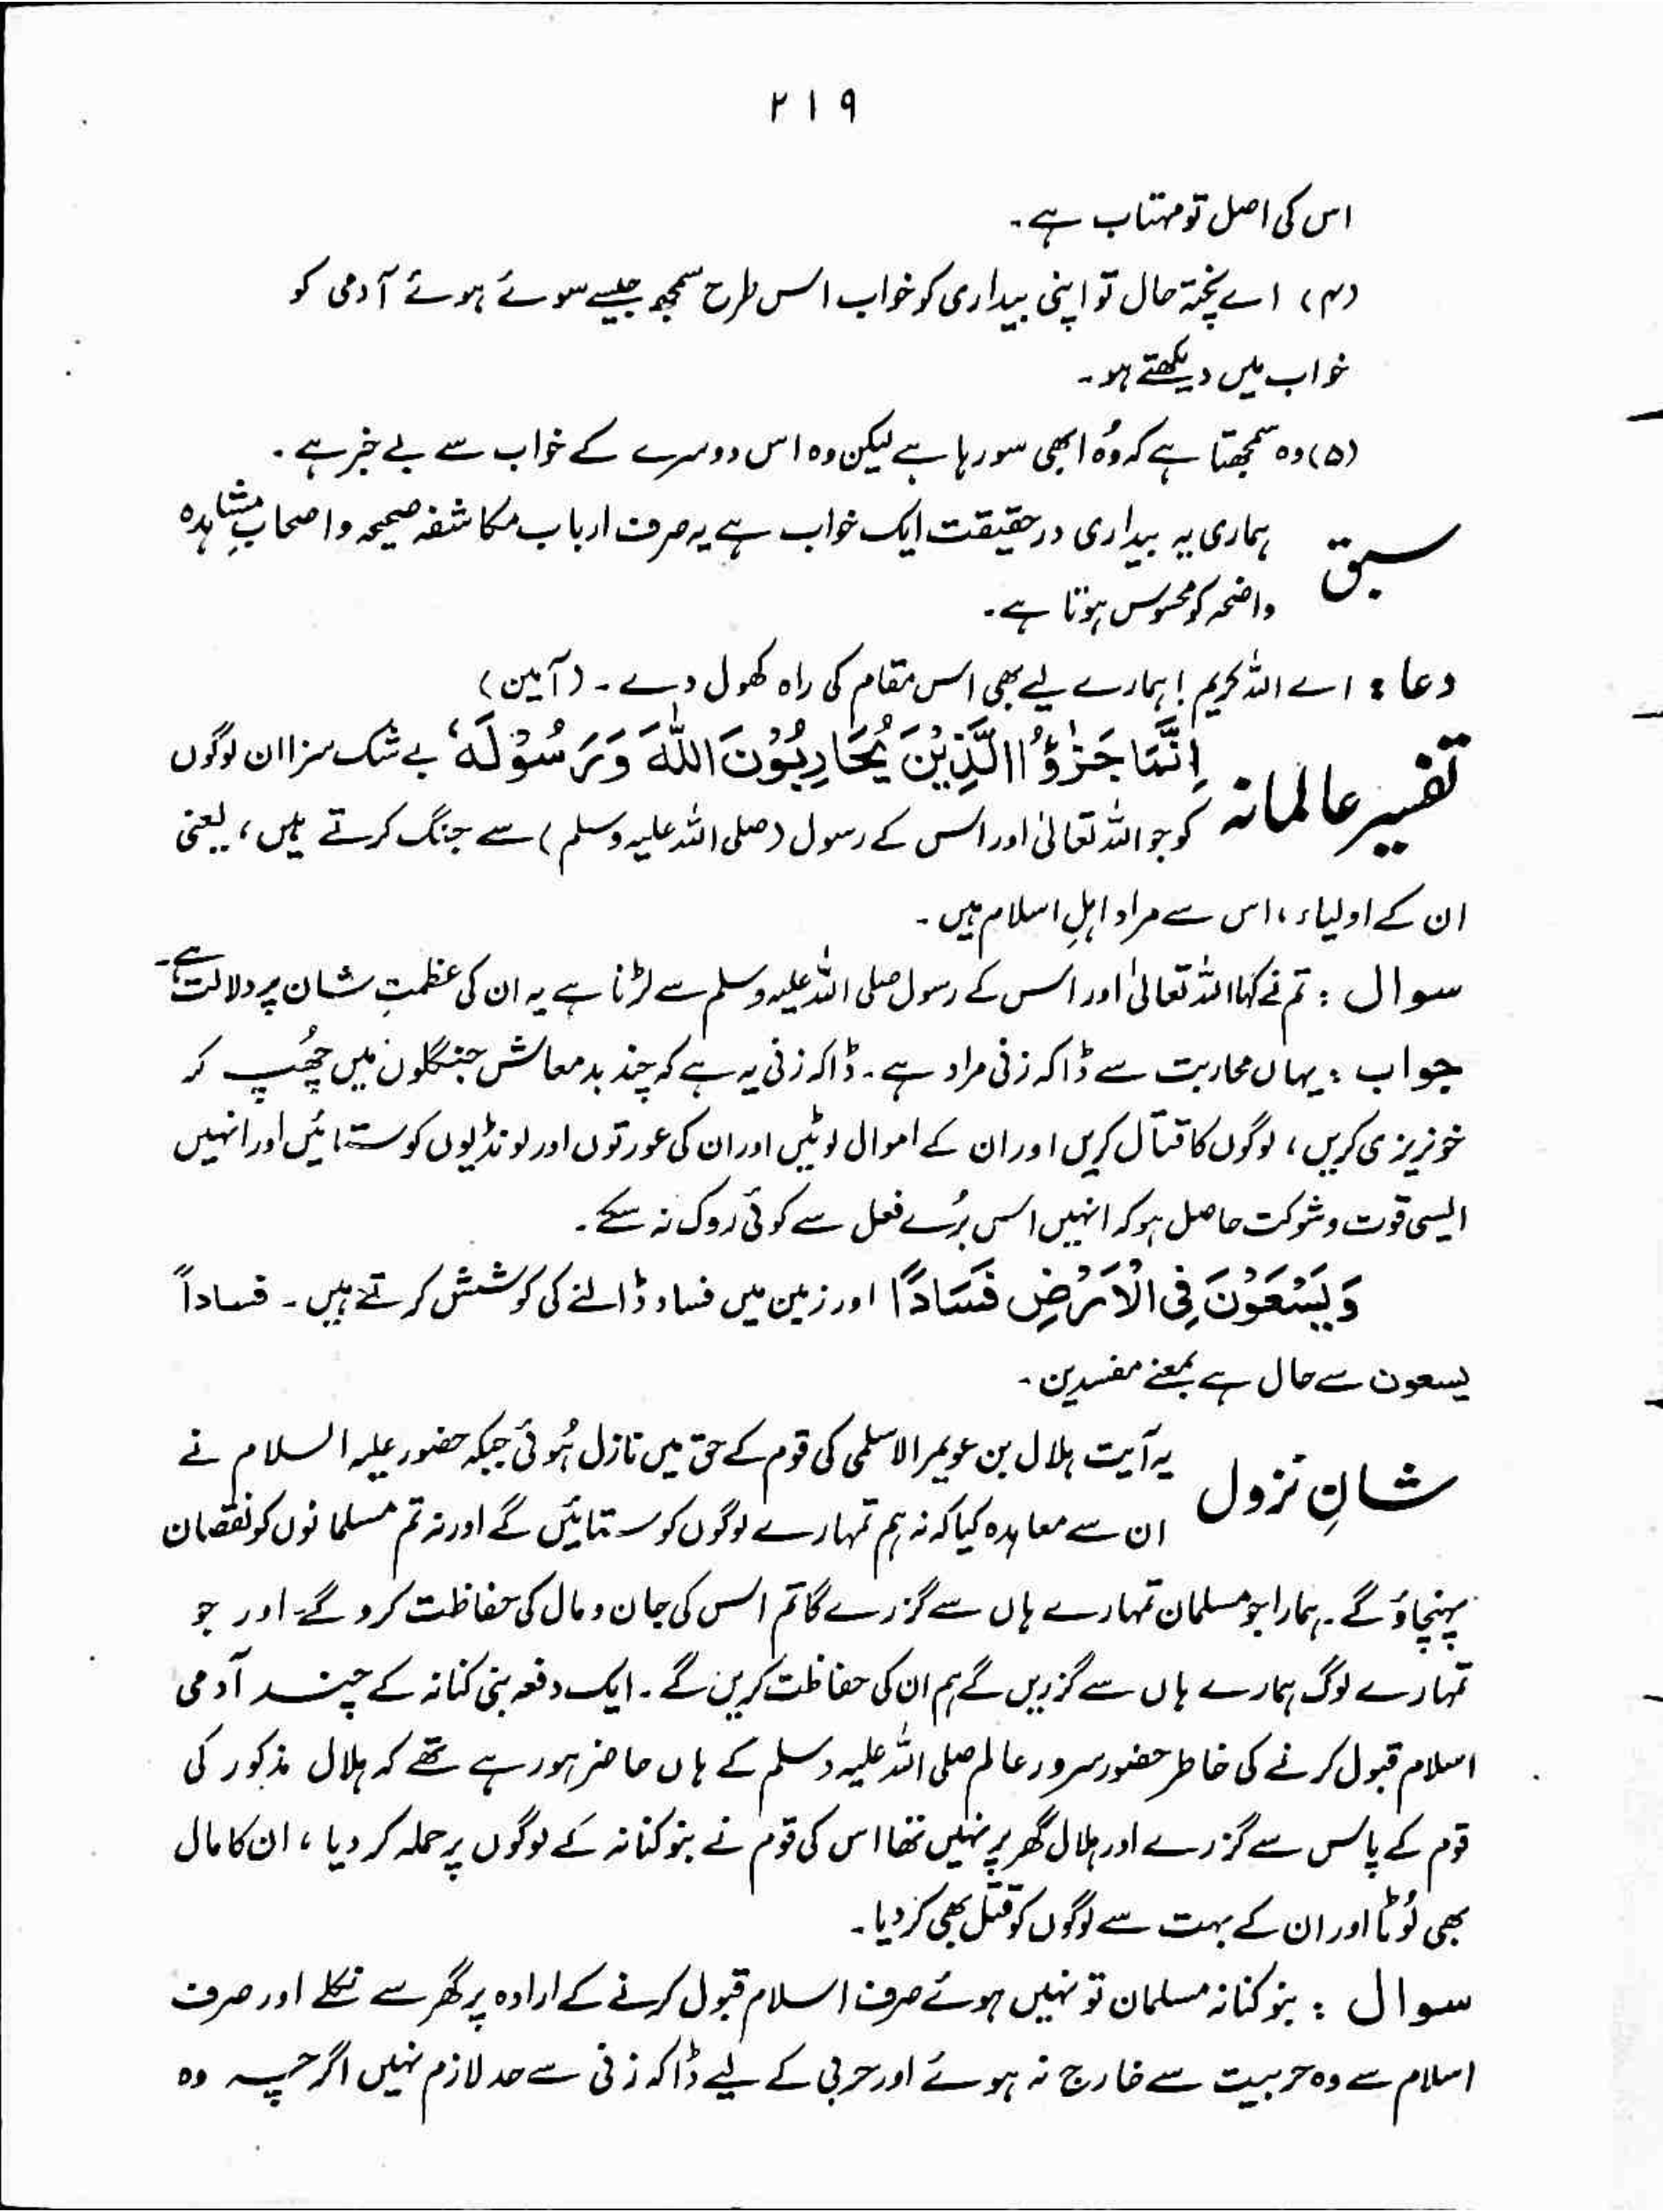 ۲۱۹
اس کی اصل تو مہتاب ہے۔
(۴) اے پختہ حال تو اپنی بیداری کو خواب اس طرح سمجھ جیسے سوئے ہوئے آدمی کو
خواب میں دیکھتے ہو۔
(۵) وہ سمجھتا ہے کہ وُہ ابھی سو رہا ہے لیکن وہ اس دوسرے کے خواب سے بے خبر ہے۔
سبق ہماری یہ بیداری درحقیقت ایک خواب ہے یہ صرف ارباب مکاشفہ صحیحہ و اصحابِ مشاہدہ
واضحہ کو محسوس ہوتا ہے۔
دعا : اے اللہ کریم! ہمارے لیے بھی اس مقام کی راہ کھول دے۔ (آمین)
تفسیر عالمانہ اِنَّمَا جَزٰٓؤُا الَّذِیْنَ یُحَارِبُوْنَ اللّٰہَ وَرَسُوْلَہٗ بے شک سزا ان لوگوں
کو جو اللہ تعالیٰ اور اس کے رسول (صلی اللہ علیہ وسلم) سے جنگ کرتے ہیں، یعنی
ان کے اولیاء، اس سے مراد اہلِ اسلام ہیں۔
سوال : تم نے کہا اللہ تعالیٰ اور اس کے رسول صلی اللہ علیہ وسلم سے لڑنا ہے یہ ان کی عظمتِ شان پر دلالت ہے۔
جواب : یہاں محاربت سے ڈاکہ زنی مراد ہے۔ ڈاکہ زنی یہ ہے کہ چند بدمعاش جنگلوں میں چھُپ کر
خونریزی کریں، لوگوں کا قتال کریں اور ان کے اموال لوٹیں اور ان کی عورتوں اور لونڈیوں کو ستائیں اور انہیں
ایسی قوت و شوکت حاصل ہو کہ انہیں اس بُرے فعل سے کوئی روک نہ سکے۔
وَیَسْعَوْنَ فِی الْاَرْضِ فَسَادًا اور زمین میں فساد ڈالنے کی کوشش کرتے ہیں۔ فساداً
یسعون سے حال ہے بمعنے مفسدین۔
شانِ نزول یہ آیت ہلال بن عویمر الاسلمی کی قوم کے حق میں نازل ہُوئی جبکہ حضور علیہ السلام نے
ان سے معاہدہ کیا کہ نہ ہم تمہارے لوگوں کو ستائیں گے اور نہ تم مسلمانوں کو نقصان
پہنچاؤ گے۔ ہمارا جو مسلمان تمہارے ہاں سے گزرے گا تم اس کی جان و مال کی حفاظت کرو گے۔ اور جو
تمہارے لوگ ہمارے ہاں سے گزریں گے ہم ان کی حفاظت کریں گے۔ ایک دفعہ بنی کنانہ کے چند آدمی
اسلام قبول کرنے کی خاطر حضور سرور عالم صلی اللہ علیہ وسلم کے ہاں حاضر ہو رہے تھے کہ ہلال مذکور کی
قوم کے پاس سے گزرے اور ہلال گھر پر نہیں تھا اس کی قوم نے بنو کنانہ کے لوگوں پر حملہ کر دیا، ان کا مال
بھی لُوٹا اور ان کے بہت سے لوگوں کو قتل بھی کر دیا۔
سوال : بنو کنانہ مسلمان تو نہیں ہوئے صرف اسلام قبول کرنے کے ارادہ پر گھر سے نکلے اور صرف
اسلام سے وہ حربیت سے خارج نہ ہوئے اور حربی کے لیے ڈاکہ زنی سے حد لازم نہیں اگرچہ وہ